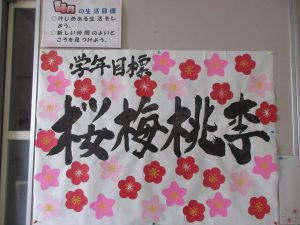 4月の生活目標
○けじめある生活をしよう。
○新しい仲間のよいところを見つけよう。
学年目標
桜梅桃李